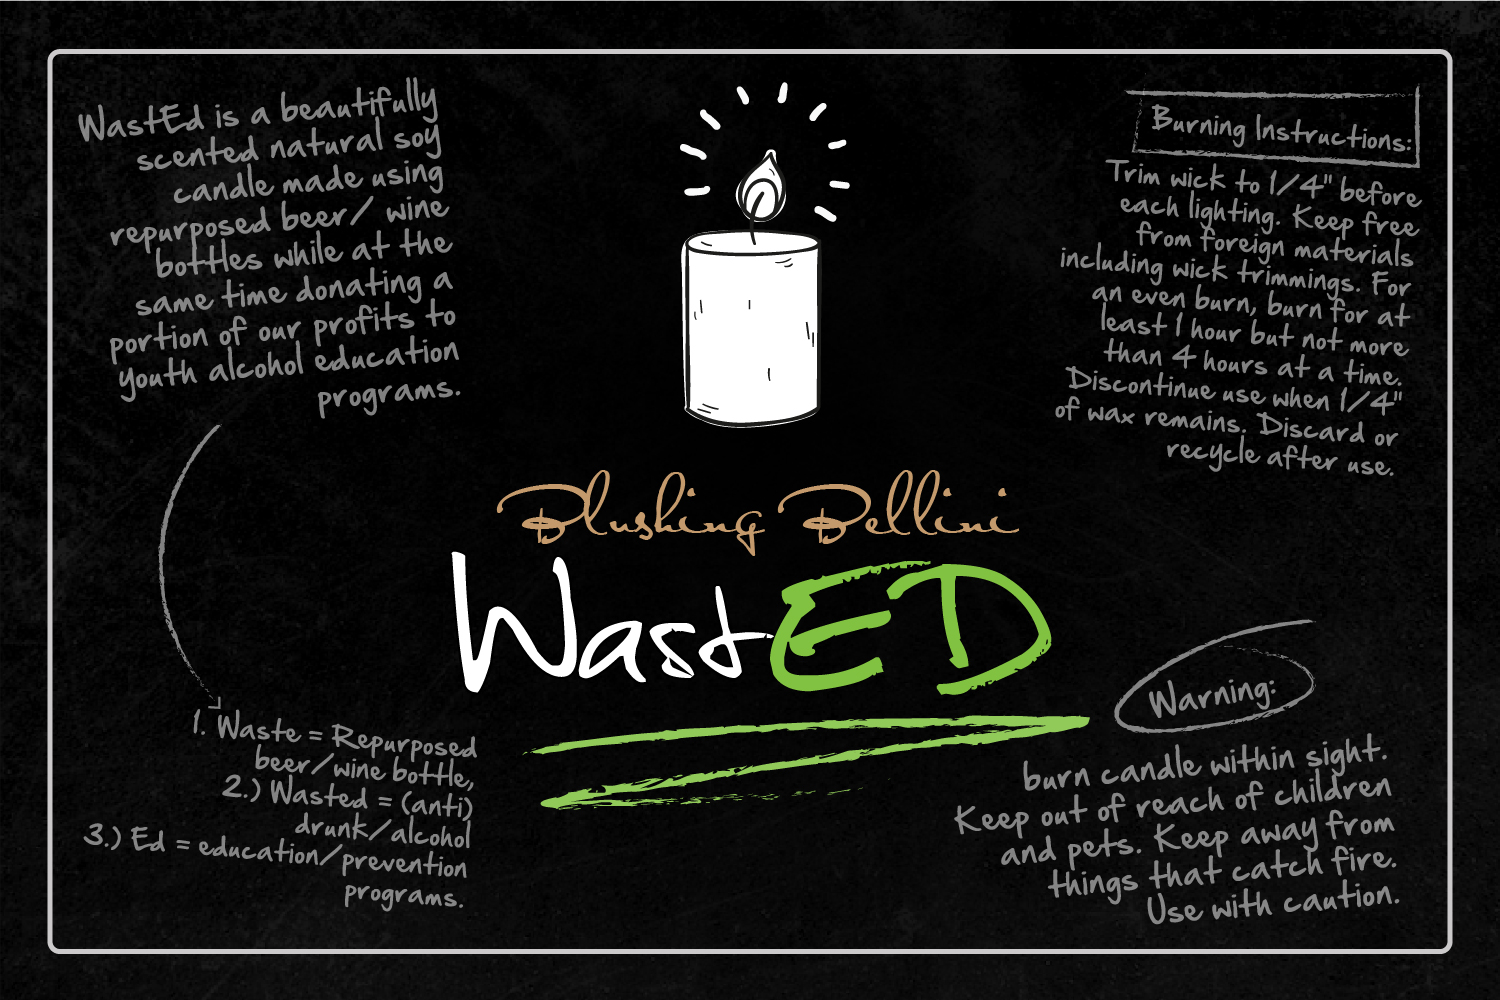 WastEd is a beautifully
scented natural soy
candle made using
repurposed beer/ wine
bottles while at the
same time donating a
portion of our profits to
youth alcohol education
programs.
1. Waste = Repurposed
beer/wine bottle,
2.) Wasted = (anti)
drunk/alcohol
3.) Ed = education/prevention
programs.
Blushing Bellini
WastED
Burning Instructions:
Trim wick to 1/4" before
each lighting. Keep free
from foreign materials
including wick trimmings. For
an even burn, burn for at
least 1 hour but not more
than 4 hours at a time.
Discontinue use when 1/4"
of wax remains. Discard or
recycle after use.
Warning:
burn candle within sight.
Keep out of reach of children
and pets. Keep away from
things that catch fire.
Use with caution.